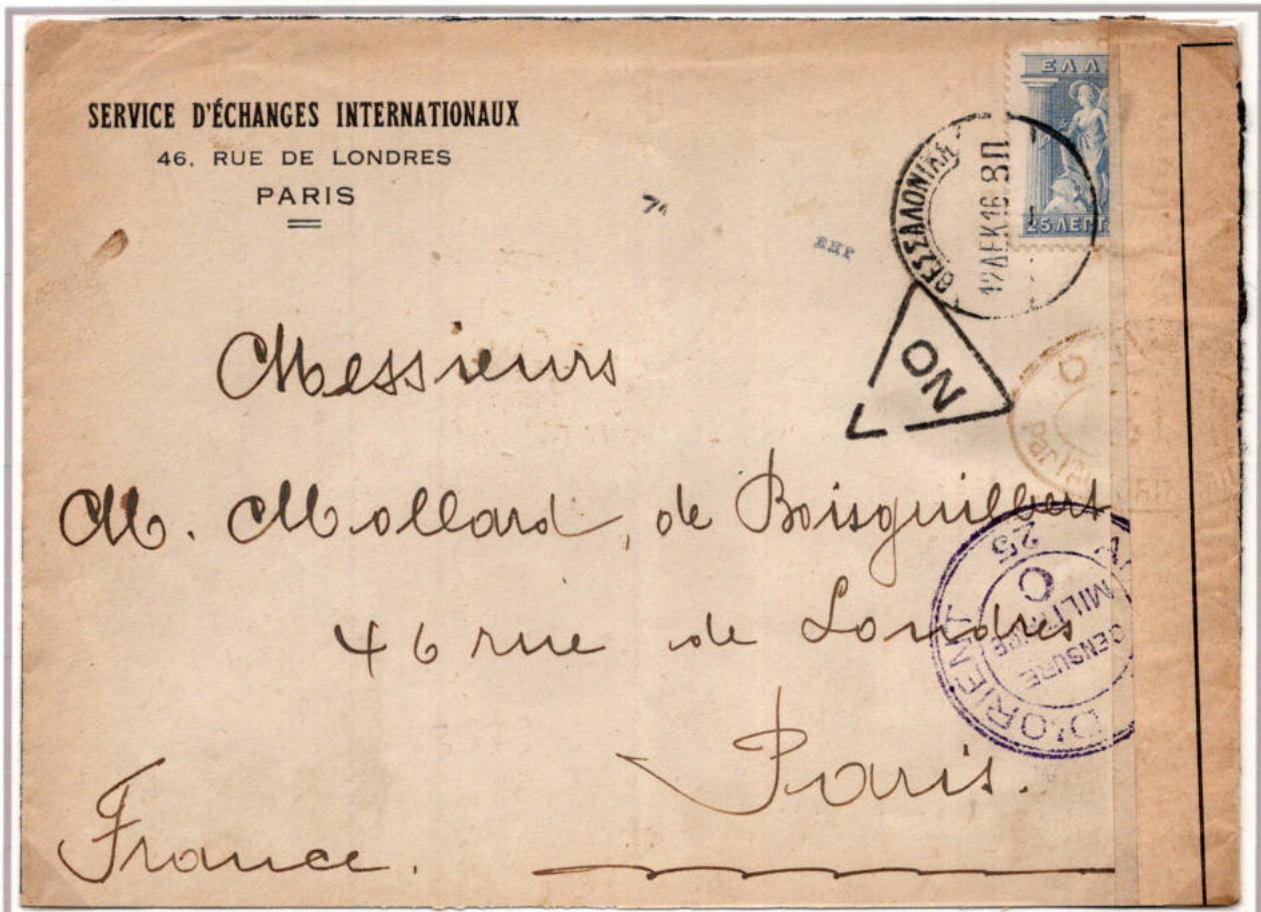 SERVICE D'ÉCHANGES INTERNATIONAUX
46, RUE DE LONDRES
PARIS
ΕΛΛ
25 ΛΕΠΤ
ΘΕΣΣΑΛΟΝΙΚΗ
12 ΔΕΚ 16 8Π
NO
Messieurs
M. Mollard, de Boisguilbert
46 rue de Londres
Paris.
France.
D'ORIENT
25
CENSURE
MILITAIRE